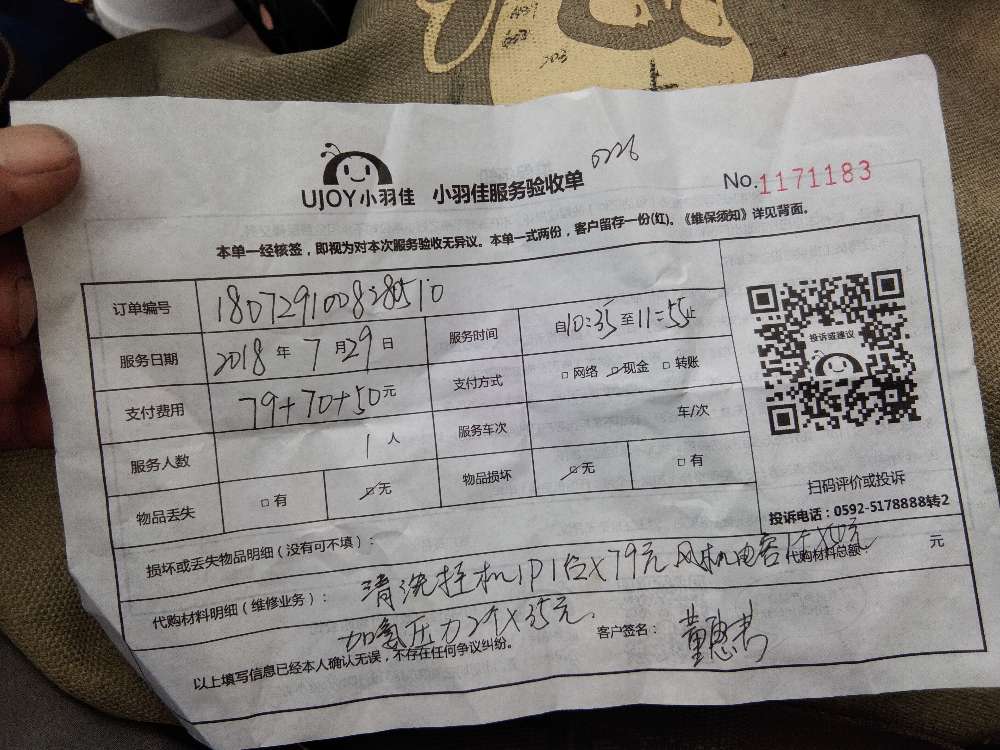 UJOY小羽佳 小羽佳服务验收单 0226
No.1171183
本单一经核签，即视为对本次服务验收无异议。本单一式两份，客户留存一份(红)。《维保须知》详见背面。
订单编号
服务日期 2018 年 7 月 29 日 服务时间 自10:35至11:55止
支付费用 79+70+50元 支付方式 □ 网络 □ 现金 □ 转账
服务人数 1 人 服务车次 车/次
物品丢失 □ 有 □ 无 物品损坏 □ 无 □ 有
投诉或建议
扫码评价或投诉
投诉电话：0592-5178888转2
损坏或丢失物品明细（没有可不填）：
代购材料明细（维修业务）： 清洗挂机1P1台×79元 风机电容 代购材料总额： 元
加氨压力2个×35元
以上填写信息已经本人确认无误，不存在任何争议纠纷。 客户签名：